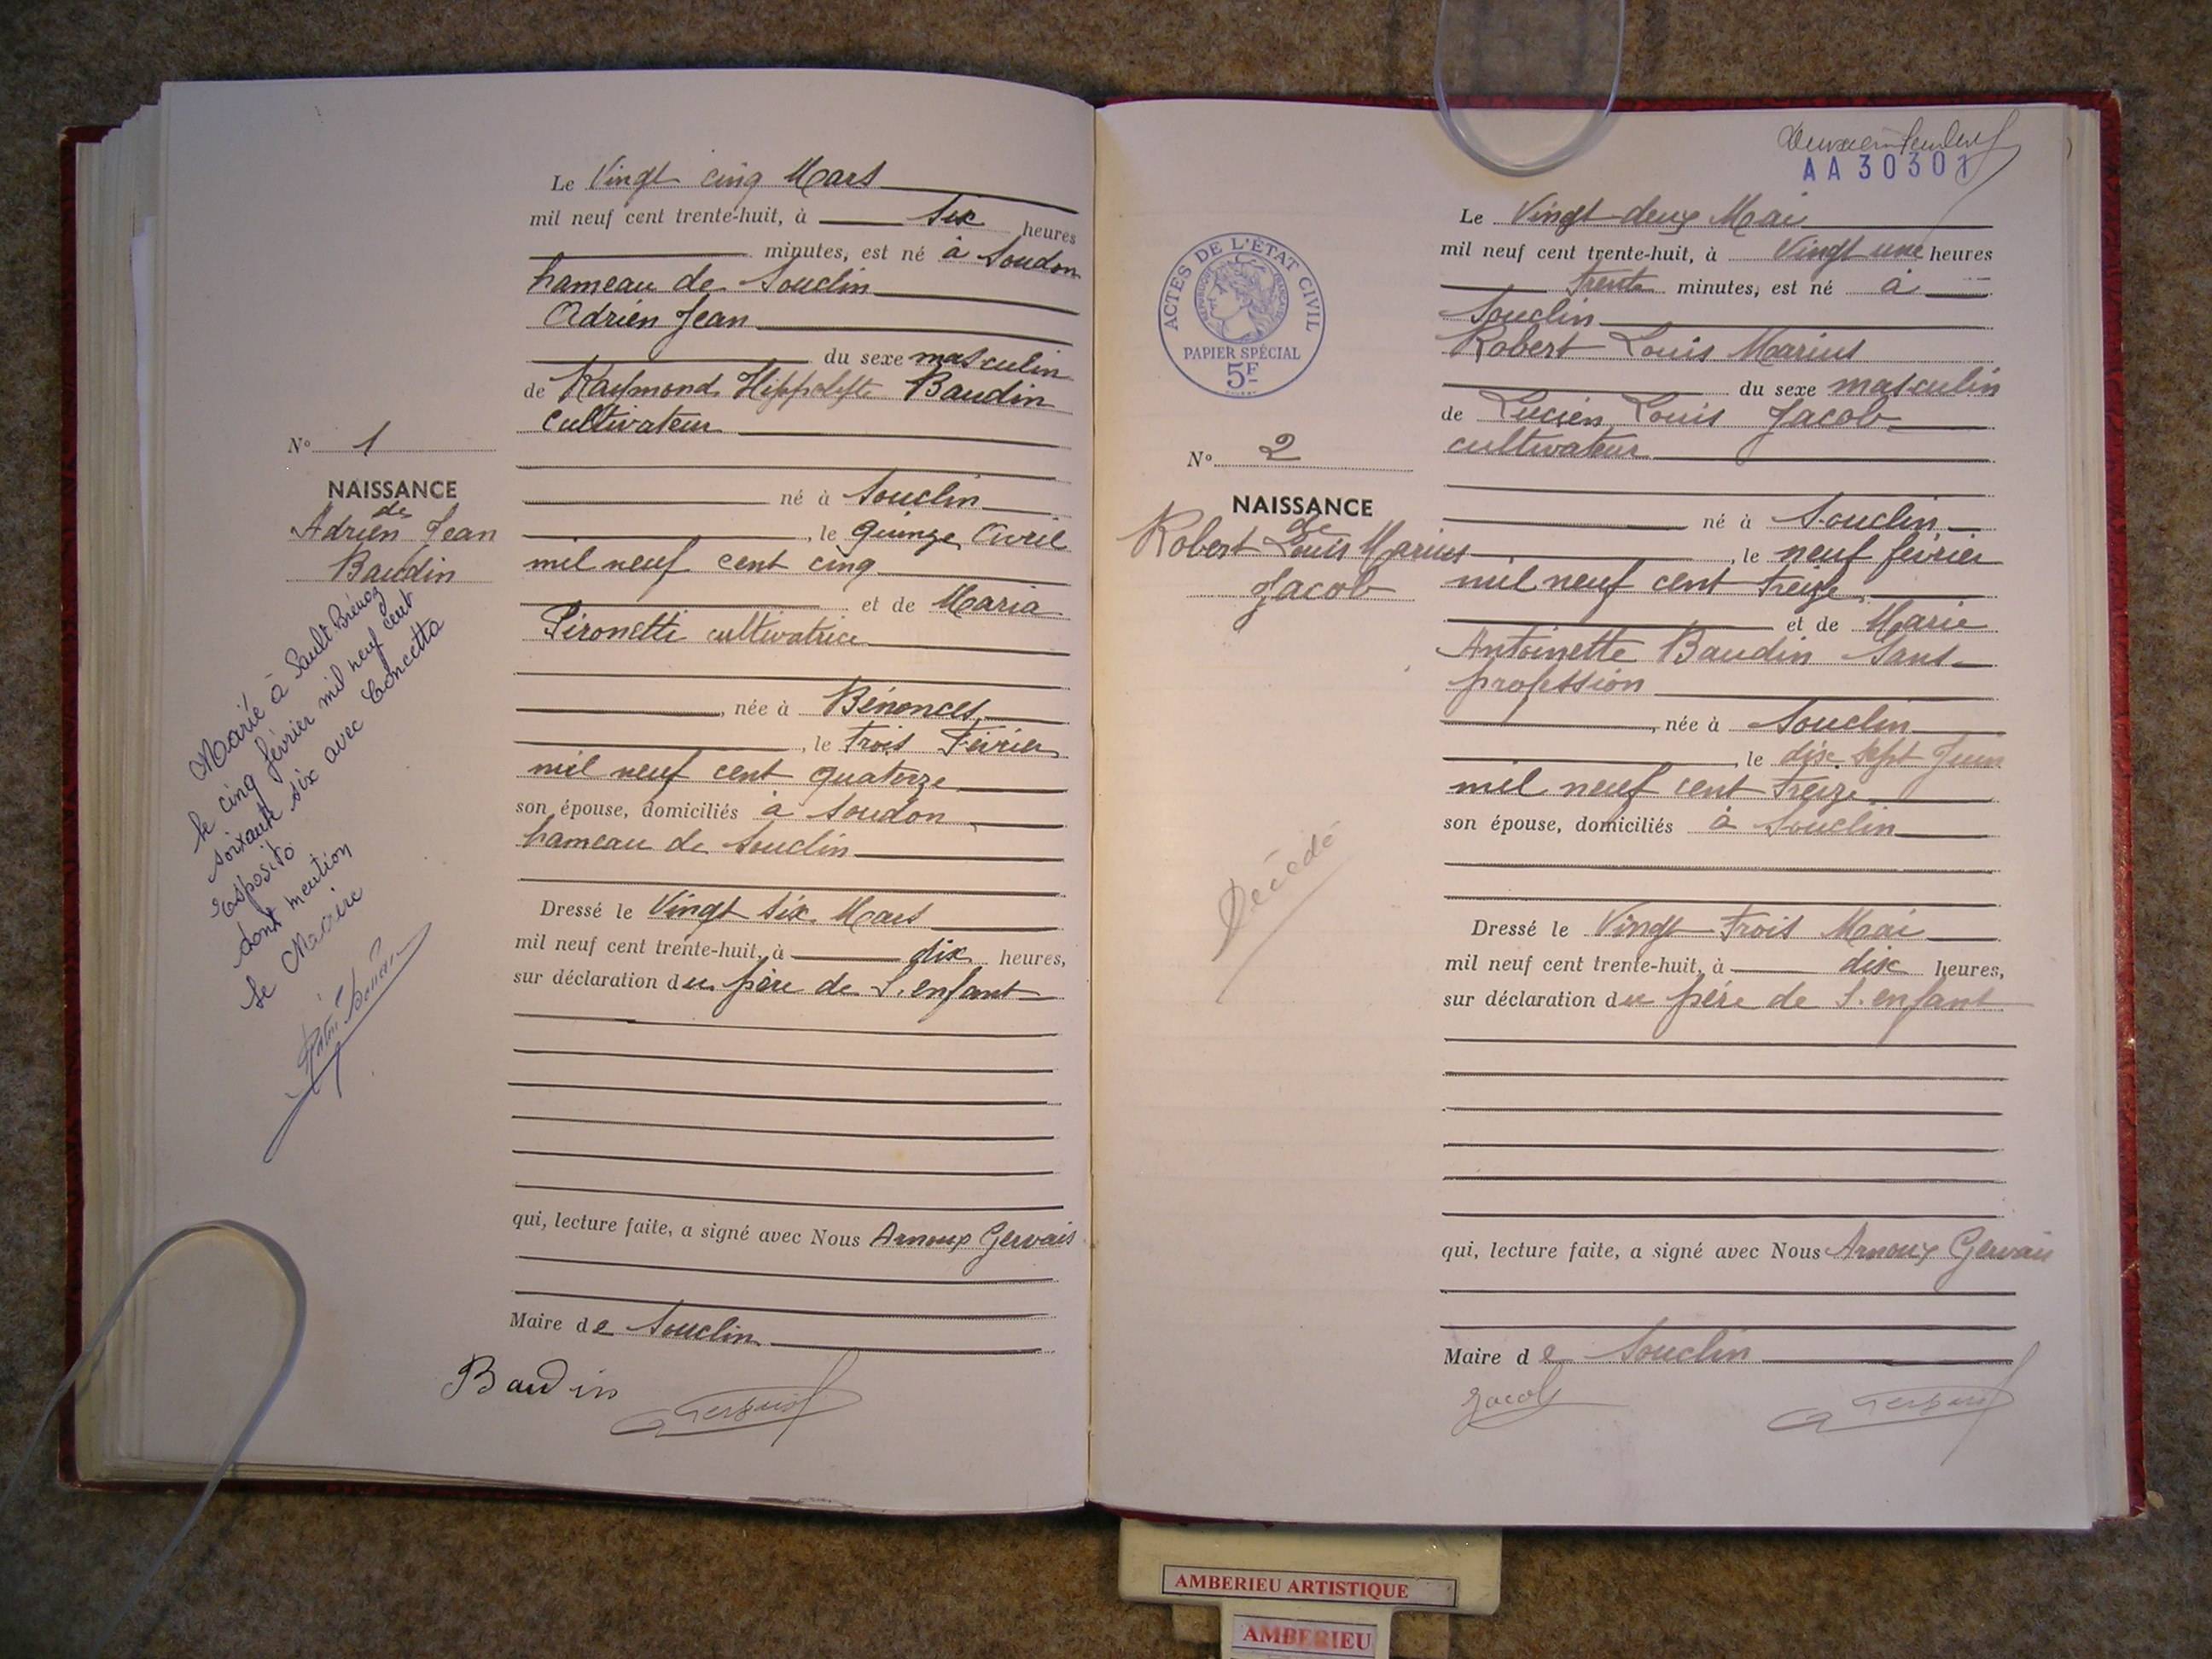 Le Vingt cinq Mars
mil neuf cent trente-huit, à six heures
minutes, est né à Soudon
hameau de Souclin
Adrien Jean
du sexe masculin
de Raymond Hippolyte Baudin
cultivateur
né à Souclin
, le quinze Avril
mil neuf cent cinq
et de Maria
Pironetti cultivatrice
, née à Bénonces
, le trois Février
mil neuf cent quatorze
son épouse, domiciliés à Soudon
hameau de Souclin
Dressé le Vingt six Mars
mil neuf cent trente-huit, à dix heures,
sur déclaration du père de L'enfant
qui, lecture faite, a signé avec Nous Arnoux Gervais
Maire de Souclin
Baudin
N° 1
NAISSANCE
de
Adrien Jean
Baudin
Marié à Sault-Brénaz
le cinq février mil neuf cent
soixante six avec Concetta
Esposito
dont mention
Le Maire
AA 30301
ACTES DE L'ÉTAT CIVIL
RÉPUBLIQUE FRANÇAISE
PAPIER SPÉCIAL
5F
Le Vingt deux Mai
mil neuf cent trente-huit, à Vingt une heures
trente minutes, est né à
Souclin
Robert Louis Marius
du sexe masculin
de Lucien Louis Jacob
cultivateur
né à Souclin
, le neuf février
mil neuf cent treize
et de Marie
Antoinette Baudin Sans
profession
, née à Souclin
, le dix sept Juin
mil neuf cent treize
son épouse, domiciliés à Souclin
Dressé le Vingt trois Mai
mil neuf cent trente-huit, à dix heures,
sur déclaration du père de L'enfant
qui, lecture faite, a signé avec Nous Arnoux Gervais
Maire de Souclin
Jacob
N° 2
NAISSANCE
de
Robert Louis Marius
Jacob
Décédé
AMBERIEU ARTISTIQUE
AMBERIEU